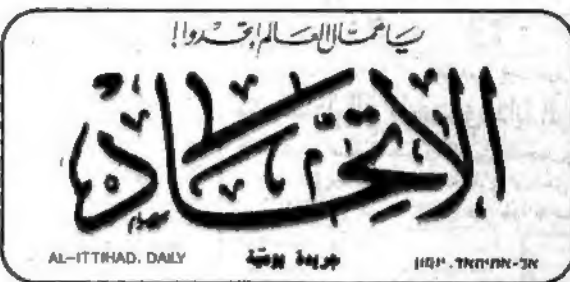 يا عمال العالم اتحدوا!
الاتحاد
AL-ITTIHAD. DAILY جريدة يومية אל-אתיחאד. יומון